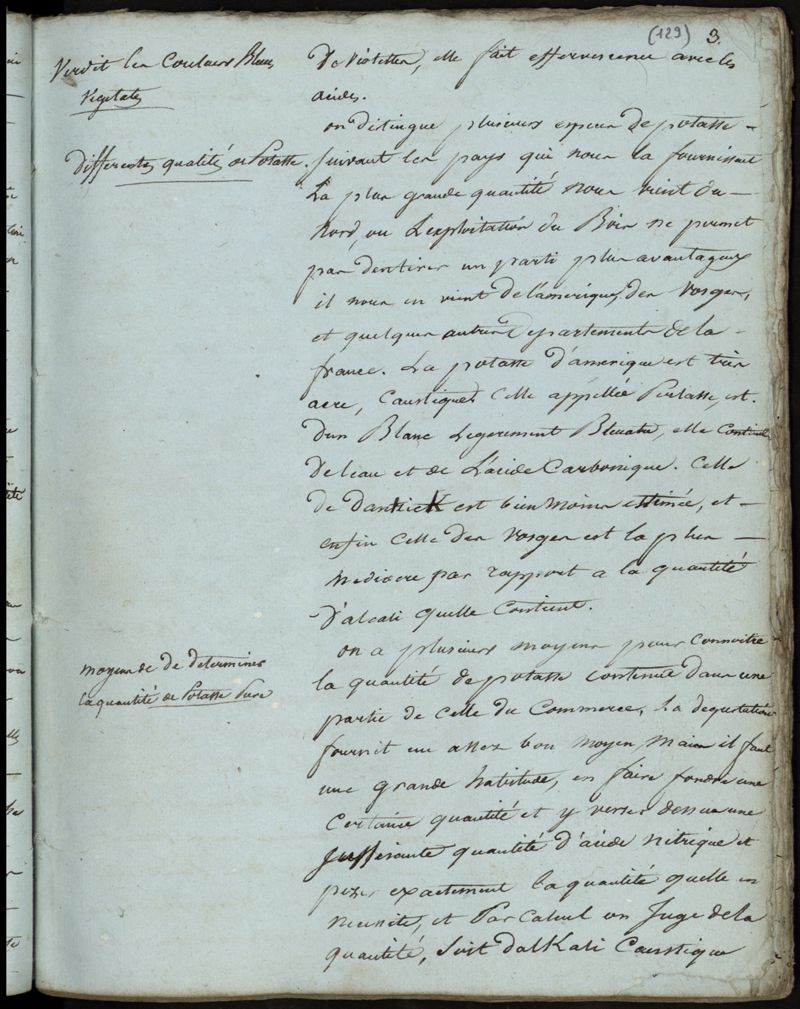 (129) 3.
Verdit les Couleurs Bleues
Vegetales
de violettes, elle fait effervescence avec les
acides.
on distingue plusieurs especes de potasse -
differentes qualités de Potasse.
suivant les pays qui nous la fournissent
La plus grande quantité nous vient du -
Nord, ou L'exploitation du Bois ne permet
pas d'en tirer un parti plus avantageux
il nous en vient de l'amerique, des Vosges,
et quelques autres Departements de la -
france. La potasse d'amerique est très
acre, Caustique, Celle appellée Perlasse, est
d'un Blanc Legerement Bleuatre, elle Contient
De l'eau et de L'acide Carbonique. Celle
de Dantzick est bien moins estimée, et -
enfin Celle des Vosges est la plus -
Mediocre par rapport a la quantité
D'alcali quelle Contient.
moyens de De determiner
la quantité de Potasse Pure
on a plusieurs moyens pour Connoitre
la quantité de potasse contenue dans une
partie de Celle du Commerce, la degustation
fournit un assez bon moyen, Mais il faut
une grande habitude, en faire fondre une
Certaine quantité et y verser dessus une
suffisante quantité d'acide nitrique et
pezer exactement la quantité quelle en
necessite, et Par Calcul on Juge de la
quantité, Soit d'alKali Caustique